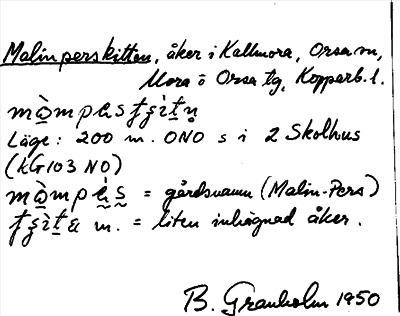 Malinperskitten, åker i Kallmora, Orsa sn,
Mora o Orsa tg, Kopparb. l.
Läge: 200 m. ONO s i 2 Skolhus
(KG103 NO)
= gårdsnamn (Malin-Pers)
m. = liten inhägnad åker.
B. Granholm 1950